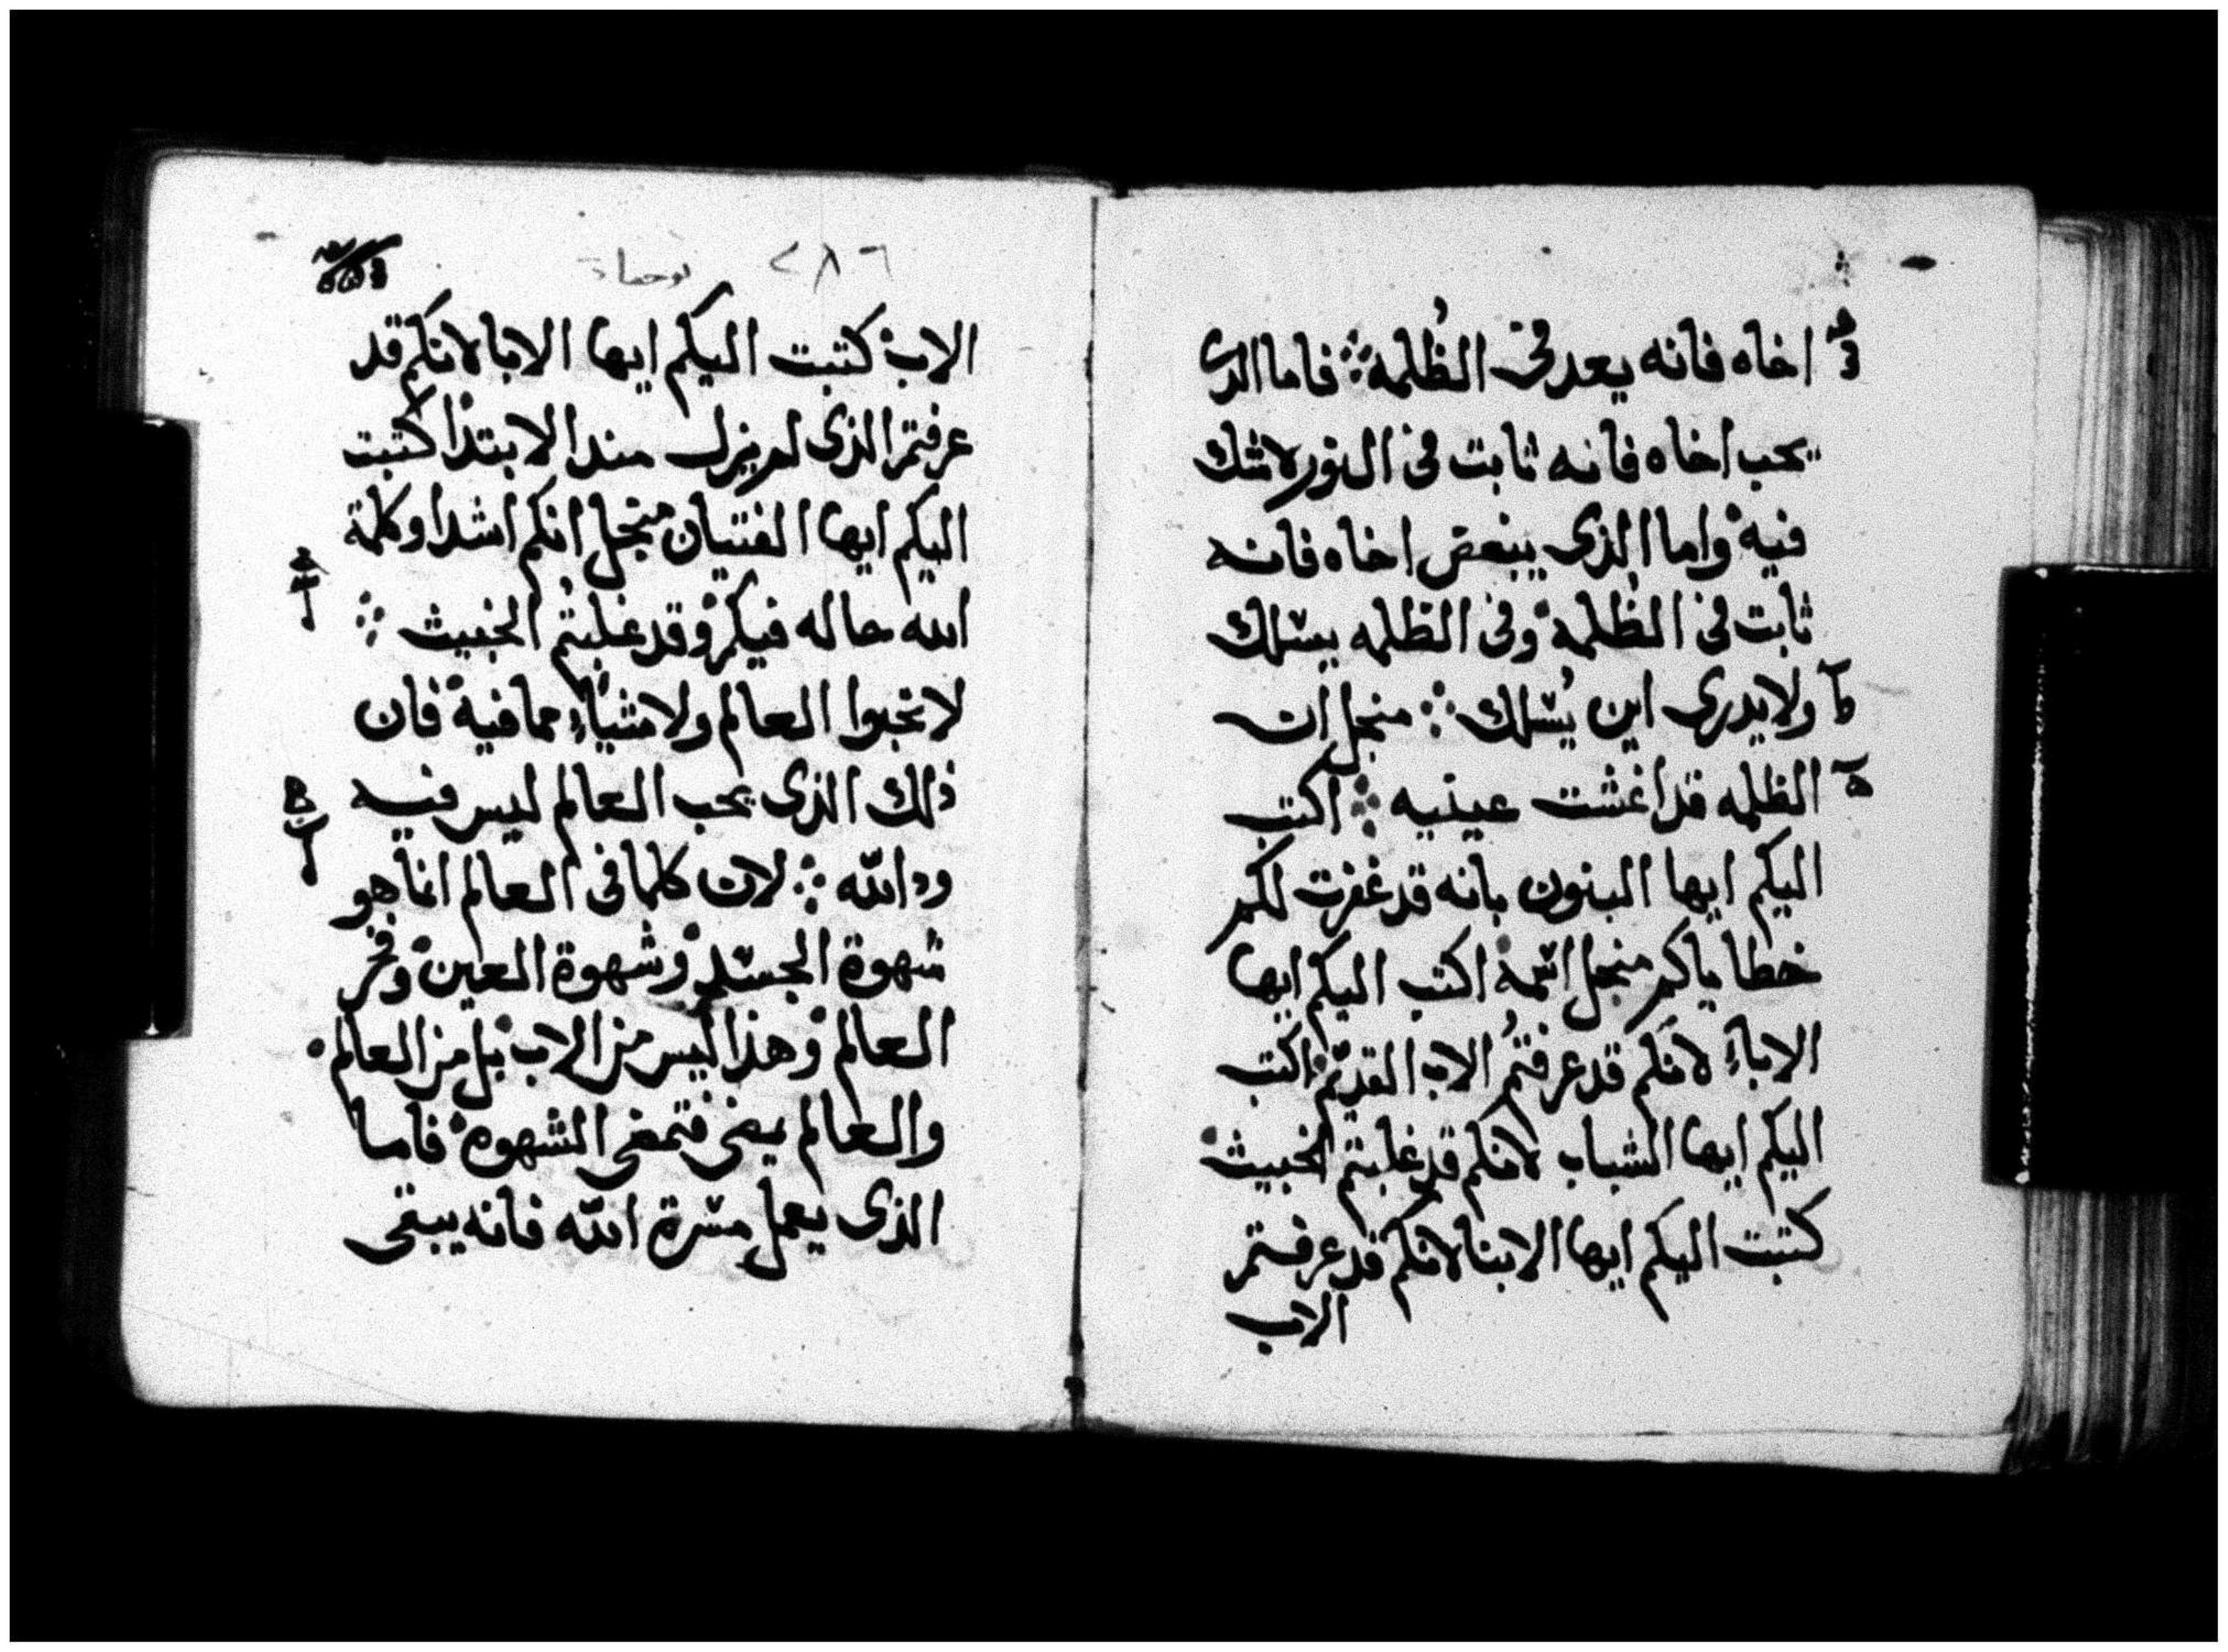 اخاه فانه يعد في الظُلمة فاما الدى
يحب اخاه فانه ثابت في النور لا شك
فيه واما الذى يبغض اخاه فانه
ثابت في الظُلمة وفى الظلمه يسلك
ولا يدرى اين يُسلك منجل ان
الظلمه قد اغشت عينيه اكتب
اليكم ايها البنون بانه قد غفرت لكم
خطاياكم منجل اسمه اكتب اليكم ايها
الاباء لانكم قد عرفتمُ الاب القديم اكتب
اليكم ايها الشباب لانكم قد غلبتم الخبيث
كتبت اليكم ايها الابنا لانكم قد عرفتم
الاب
٢٨٦ يوحنا
الاب كتبت اليكم ايها الابا لانكم قد
عرفتم الذى لم يزل مند الابتدا كتبت
اليكم ايها الفتيان منجل انكم اشدا وكلمة
الله حاله فيكم وقد غلبتُم الخبيث
لا تحبوا العالم ولا شيًاء مما فيه فان
ذلك الذى يحب العالم ليس فيه
ود الله لان كلما في العالم انما هو
شهوة الجسد وشهوة العين وفخر
العالم وهذا ليس من الاب بل من العالم
والعالم يمضى فتمضى الشهوة فاما
الذى يعمل مسرة الله فانه يبقى